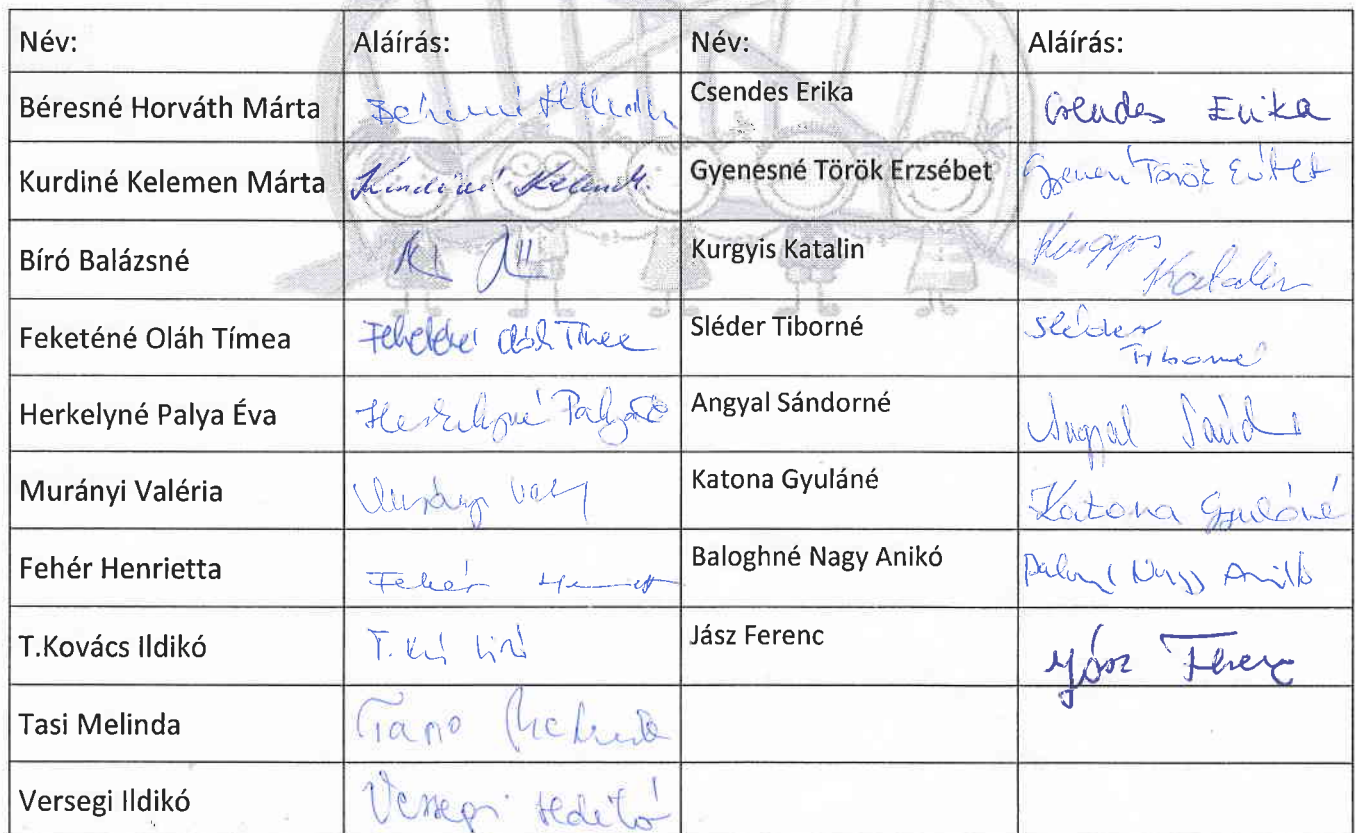 Név: Aláírás: Név: Aláírás:
Béresné Horváth Márta Csendes Erika Csendes Erika
Kurdiné Kelemen Márta Kurdiné Kelemen M. Gyenesné Török Erzsébet Török
Bíró Balázsné Kurgyis Katalin Kurgyis Katalin
Feketéné Oláh Tímea Feketéné Oláh Tímea Sléder Tiborné Sléder Tiborné
Herkelyné Palya Éva Herkelyné Palya Éva Angyal Sándorné Angyal
Murányi Valéria Murányi Katona Gyuláné Katona Gyuláné
Fehér Henrietta Fehér Baloghné Nagy Anikó Nagy Anikó
T.Kovács Ildikó T. Jász Ferenc Jász Ferenc
Tasi Melinda Melinda
Versegi Ildikó Versegi Ildikó